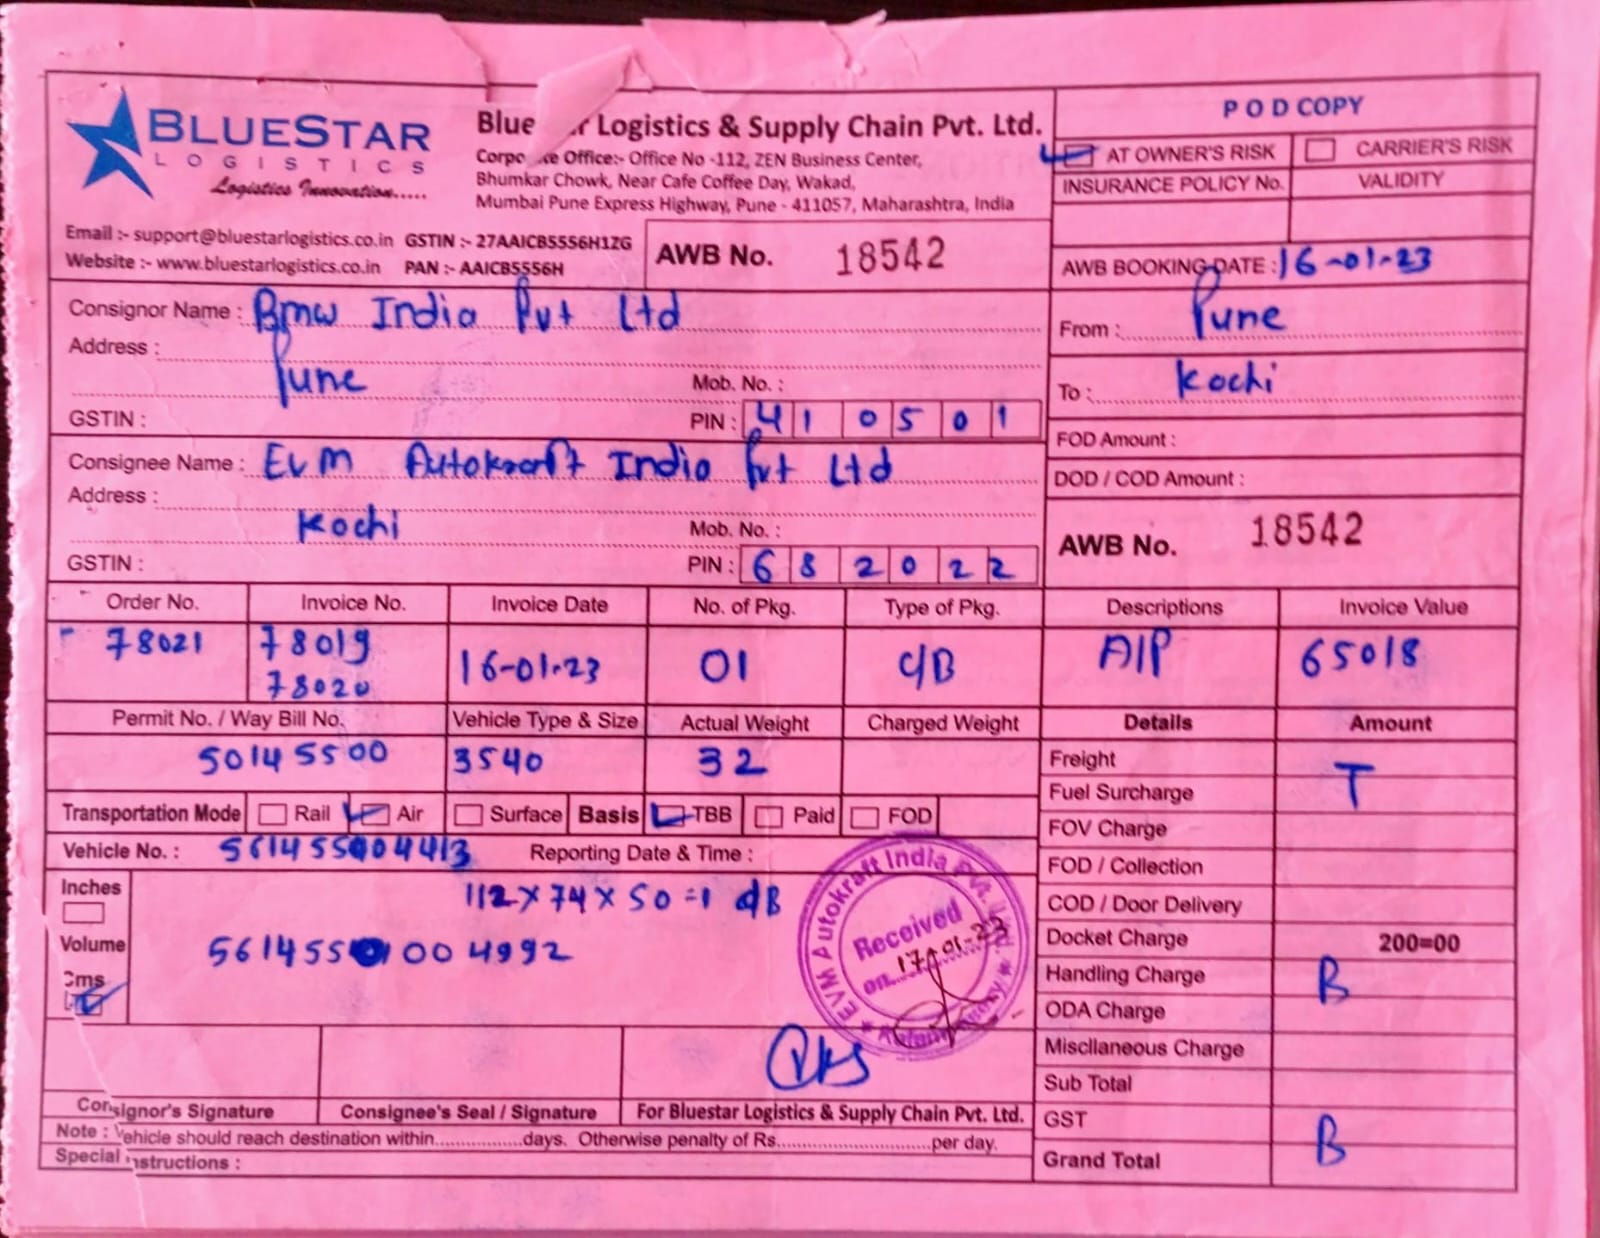 BLUESTAR
LOGISTICS
Logistics Innovation.....
Blue r Logistics & Supply Chain Pvt. Ltd.
Corpo te Office:- Office No -112, ZEN Business Center,
Bhumkar Chowk, Near Cafe Coffee Day, Wakad,
Mumbai Pune Express Highway, Pune - 411057, Maharashtra, India
POD COPY
AT OWNER'S RISK CARRIER'S RISK
INSURANCE POLICY No. VALIDITY
Email :- support@bluestarlogistics.co.in GSTIN :- 27AAICB5556H1ZG
Website :- www.bluestarlogistics.co.in PAN :- AAICB5556H
AWB No. 18542
AWB BOOKING DATE : 16-01-23
Consignor Name : Bmw India Pvt Ltd
From : Pune
Address :
Pune Mob. No. :
To : Kochi
GSTIN : PIN : 410501
FOD Amount :
Consignee Name : EVM Autokraft India Pvt Ltd
DOD / COD Amount :
Address :
Kochi Mob. No. :
AWB No. 18542
GSTIN : PIN : 682022
Order No. Invoice No. Invoice Date No. of Pkg. Type of Pkg. Descriptions Invoice Value
78021 78019 16-01-23 01 C/B AIP 65018
78020
Permit No. / Way Bill No. Vehicle Type & Size Actual Weight Charged Weight Details Amount
50145500 3540 32
Freight
T
Fuel Surcharge
Transportation Mode Rail Air Surface Basis TBB Paid FOD
FOV Charge
Vehicle No. : Reporting Date & Time :
FOD / Collection
Inches
112 x 74 x 50 = 1
COD / Door Delivery
Volume
Docket Charge 200=00
Cms
Handling Charge B
ODA Charge
EVM Autokraft India Pvt. Ltd.
Received
on 17-01-23
Miscllaneous Charge
Sub Total
Consignor's Signature Consignee's Seal / Signature For Bluestar Logistics & Supply Chain Pvt. Ltd.
GST
Note : Vehicle should reach destination within................days. Otherwise penalty of Rs............................per day.
B
Special Instructions :
Grand Total